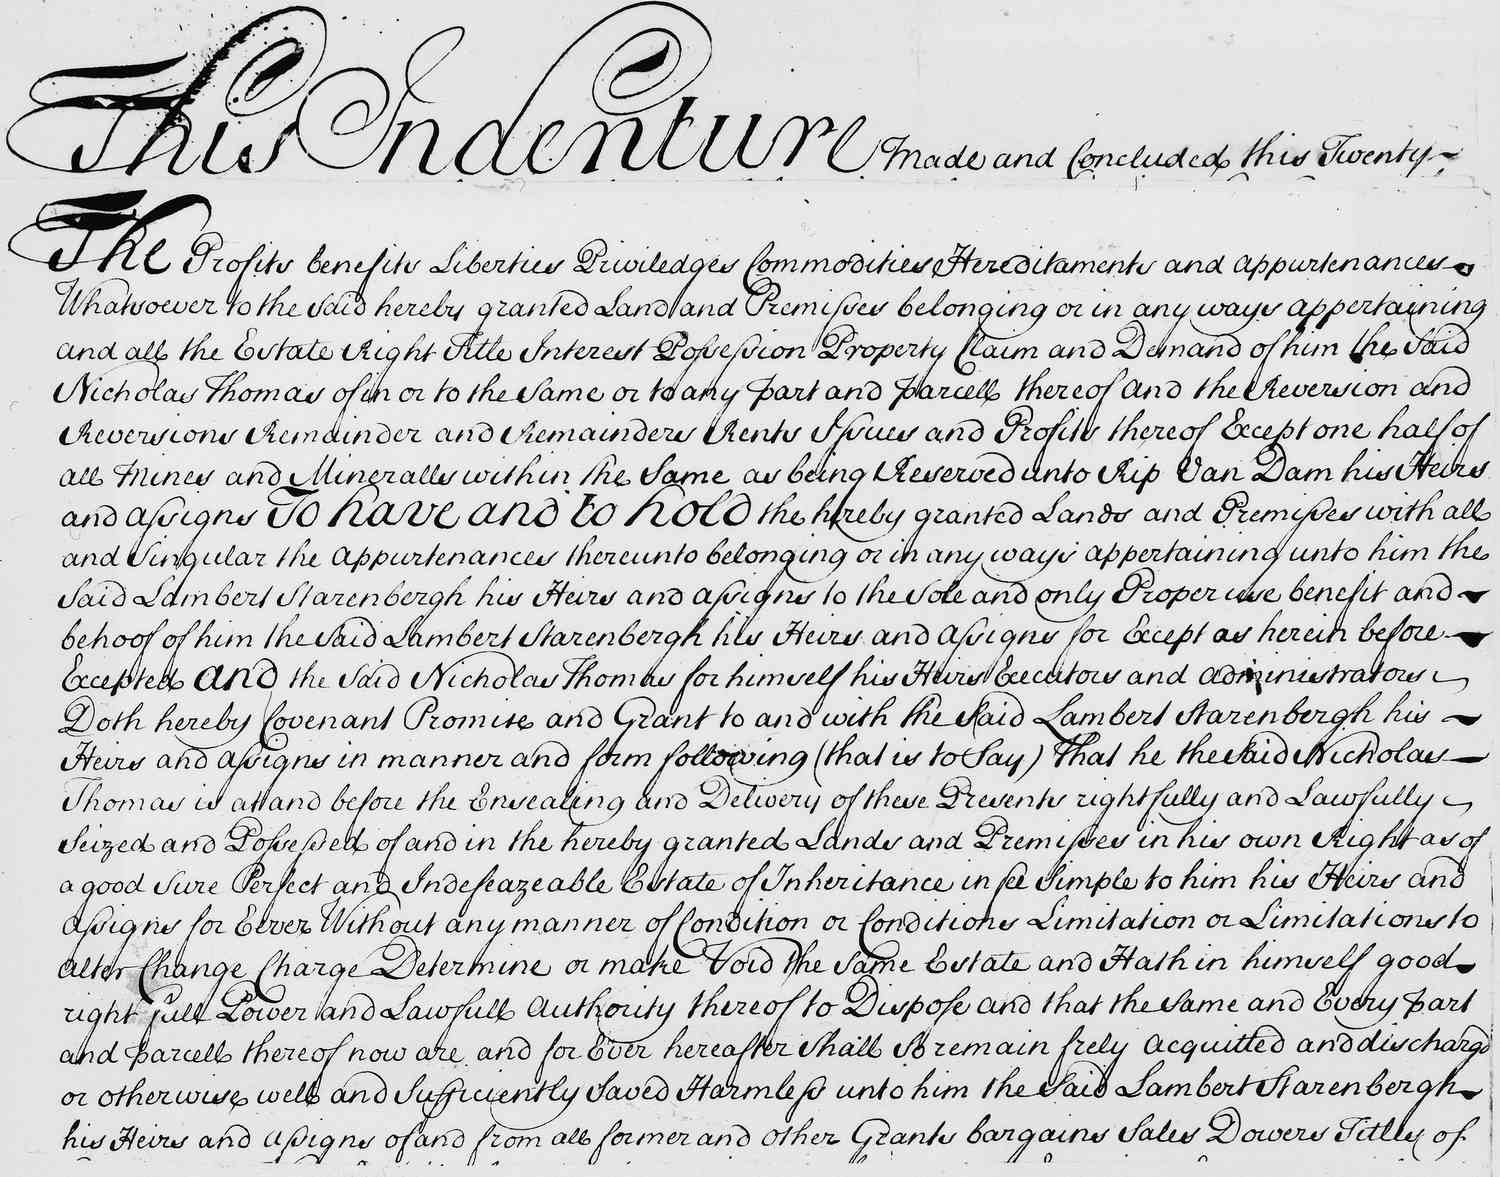 This Indenture Made and Concluded this Twenty
The Profits benefits Liberties Priviledges Commodities Hereditaments and appurtenances
Whatsoever to the said hereby granted Land and Premisses belonging or in any ways appertaining
and all the Estate Right Title Interest Possession Property Claim and Demand of him the Said
Nicholas Thomas of in or to the Same or to any part and parcell thereof and the Reversion and
Reversions Remainder and Remainders Rents Issues and Profits thereof Except one half of
all Mines and Mineralls within the Same as being Reserved unto Rip Van Dam his Heirs
and assigns To have and to hold the hereby granted Lands and Premisses with all
and Singular the appurtenances thereunto belonging or in any ways appertaining unto him the
Said Lambert Starenbergh his Heirs and assigns to the Sole and only Proper use benefit and
behoof of him the Said Lambert Starenbergh his Heirs and assigns for Except as herein before
Excepted and the Said Nicholas Thomas for himself his Heirs Executors and administrators
Doth hereby Covenant Promise and Grant to and with the Said Lambert Starenbergh his
Heirs and assigns in manner and form following (that is to Say) That he the Said Nicholas
Thomas is at and before the Ensealing and Delivery of these Presents rightfully and Lawfully
Seized and Possessed of and in the hereby granted Lands and Premisses in his own Right as of
a good Sure Perfect and Indefeazeable Estate of Inheritance in fee Simple to him his Heirs and
assigns for Eever Without any manner of Condition or Conditions Limitation or Limitations to
alter Change Charge Determine or make Void the Same Estate and Hath in himself good
right full Power and Lawfull Authority thereof to Dispose and that the Same and Every part
and parcell thereof now are and for Ever hereafter Shall So remain frely acquitted and dischargd
or otherwise well and Sufficiently Saved Harmless unto him the Said Lambert Starenbergh
his Heirs and assigns of and from all former and other Grants bargains Sales Dowers Titles of